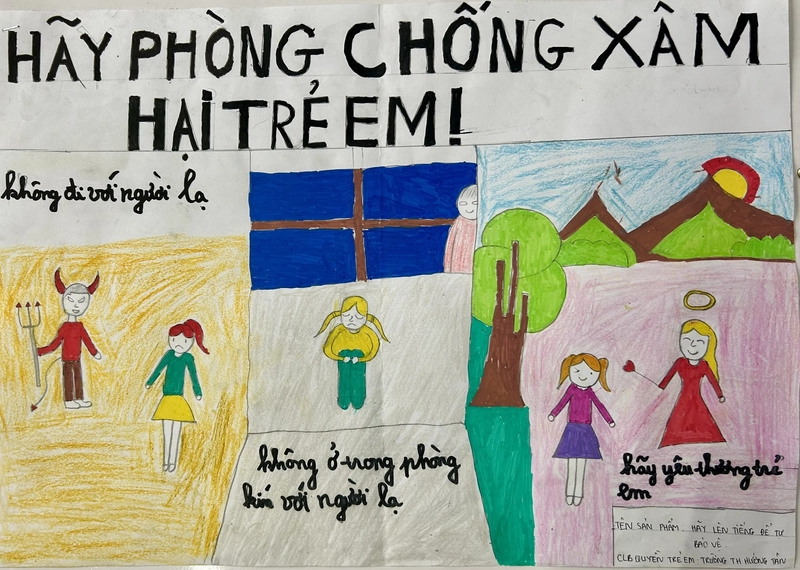 HÃY PHÒNG CHỐNG XÂM
HẠI TRẺ EM!
không đi với người lạ
không ở trong phòng
kín với người lạ
hãy yêu thương trẻ
em
TÊN SẢN PHẨM HÃY LÊN TIẾNG ĐỂ TỰ
BẢO VỆ
CLB QUYỀN TRẺ EM TRƯỜNG TH HƯỚNG TÂN